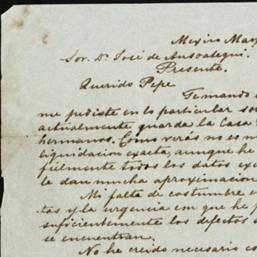 Mexico May
Sor. Dn. José de Ansoategui.
Presente.
Querido Pepe
Te mando
me pediste en lo particular so
actualmente guarda la Casa
hermanos. Como verás no es
liquidacion exacta, aunque he
fielmente todos los datos exa
le dan mucha aproximacion
Mi falta de costumbre e
tas y la urgencia con que he
suficientemente los defectos
se encuentran.
No he creido necesario co